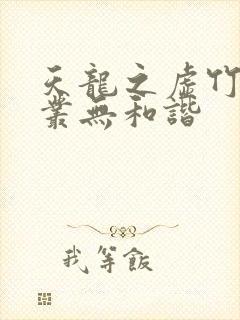 天龍之虛竹
叢無和諧
我等飯